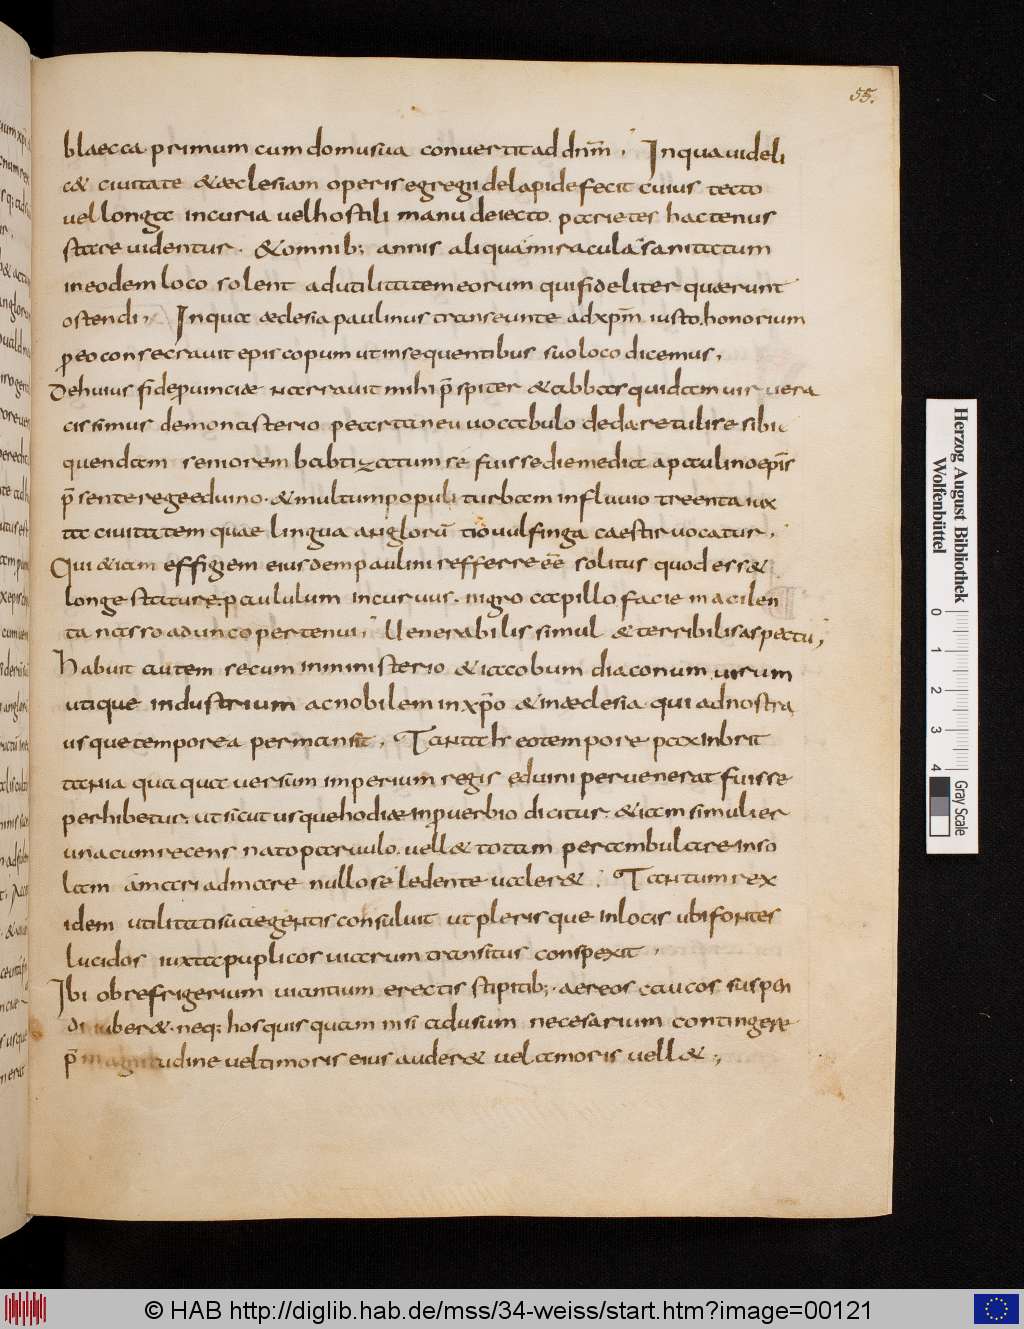 55.
blaecca primum cum domu sua convertit ad dnm̄. In qua videli
c& civitate & æclesiam operis egregi de lapide fecit cuius tecto
vel longa incuria vel hostili manu deiecto. parietes hactenus
stare videntur. & omnib; annis aliqua miracula sanitatum
in eodem loco solent ad utilitatem eorum qui fideliter quærunt
ostendi. In qua æclesia paulinus transeunte ad xpm̄ iusto. honorium
p eo consecravit episcopum ut in sequentibus suo loco dicemus.
De huius fide pvinciæ narravit mihi p̄spiter & abbas quidam vir vera
cissimus de monasterio peartaneu vocabulo deda retulise sibi
quendam seniorem babtizatum se fuisse die media a paulino ep̄is
p̄sente rege eduino. & multum populi turbam in fluvio treenta iux
ta civitatem quae lingua anglorū tiovulfinga caestir vocatur.
Qui & iam effigiem eiusdem paulini refferre eē solitus quod ess&
longe stature. paululum incurvus. nigro capillo facie macilen
ta nasso adunco pertenui. Venerabilis simul & terribilis aspectu;
Habuit autem secum in ministerio & iacobum diaconum virum
utique industrium ac nobilem in xpō & in æclesia qui ad nostra
usque tempore a permansit. Tanta hr eo tempore pax in brit
tania qua qua versum imperium regis eduini pervenerat fuisse
perhibetur. ut sicut usque hodiæ in pverbio dicitur. & iam si mulier
una cum recens nato parvulo. vell& totam perambulare inso
lam a mari ad mare nullo se ledente valer&. Tantum rex
idem utilitati suæ gentis consuluit ut plerisque in locis ubi fontes
lucidos iuxta puplicos viarum transitus conspexit.
Ibi ob refrigerium viantium erectis stipitib; aereos caucos suspen
di iuber& neq; hos quis quam nisi ad usum necesarium contingere
p̄ magnitudine vel timoris eius auder& vel amoris vell&;
Herzog August Bibliothek
Wolfenbüttel
0 1 2 3 4
Gray Scale
© HAB http://diglib.hab.de/mss/34-weiss/start.htm?image=00121